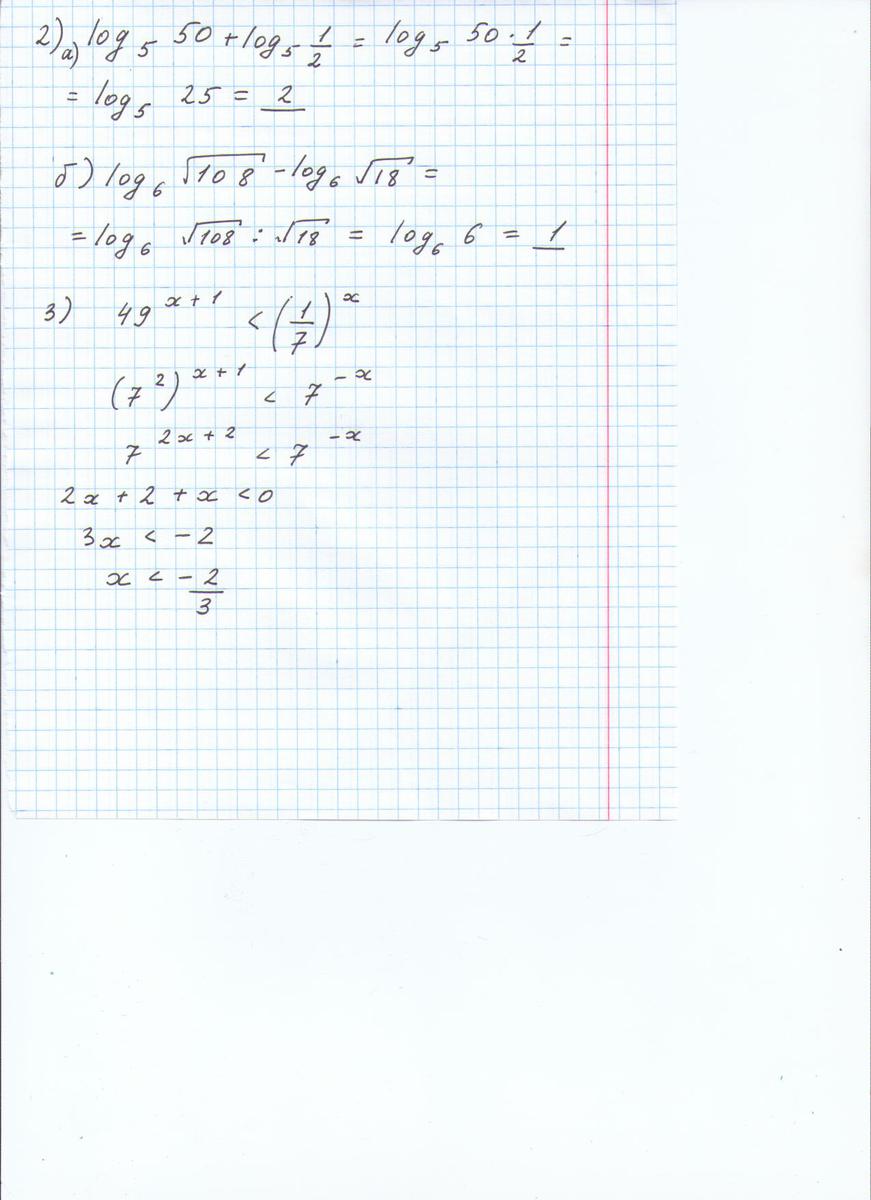 2) а) log₅ 50 + log₅ 1/2 = log₅ 50 · 1/2 =
= log₅ 25 = 2
б) log₆ √108 - log₆ √18 =
= log₆ √108 : √18 = log₆ 6 = 1
3) 49^(x+1) < (1/7)^x
(7²)^(x+1) < 7^(-x)
7^(2x+2) < 7^(-x)
2x + 2 + x < 0
3x < -2
x < -2/3